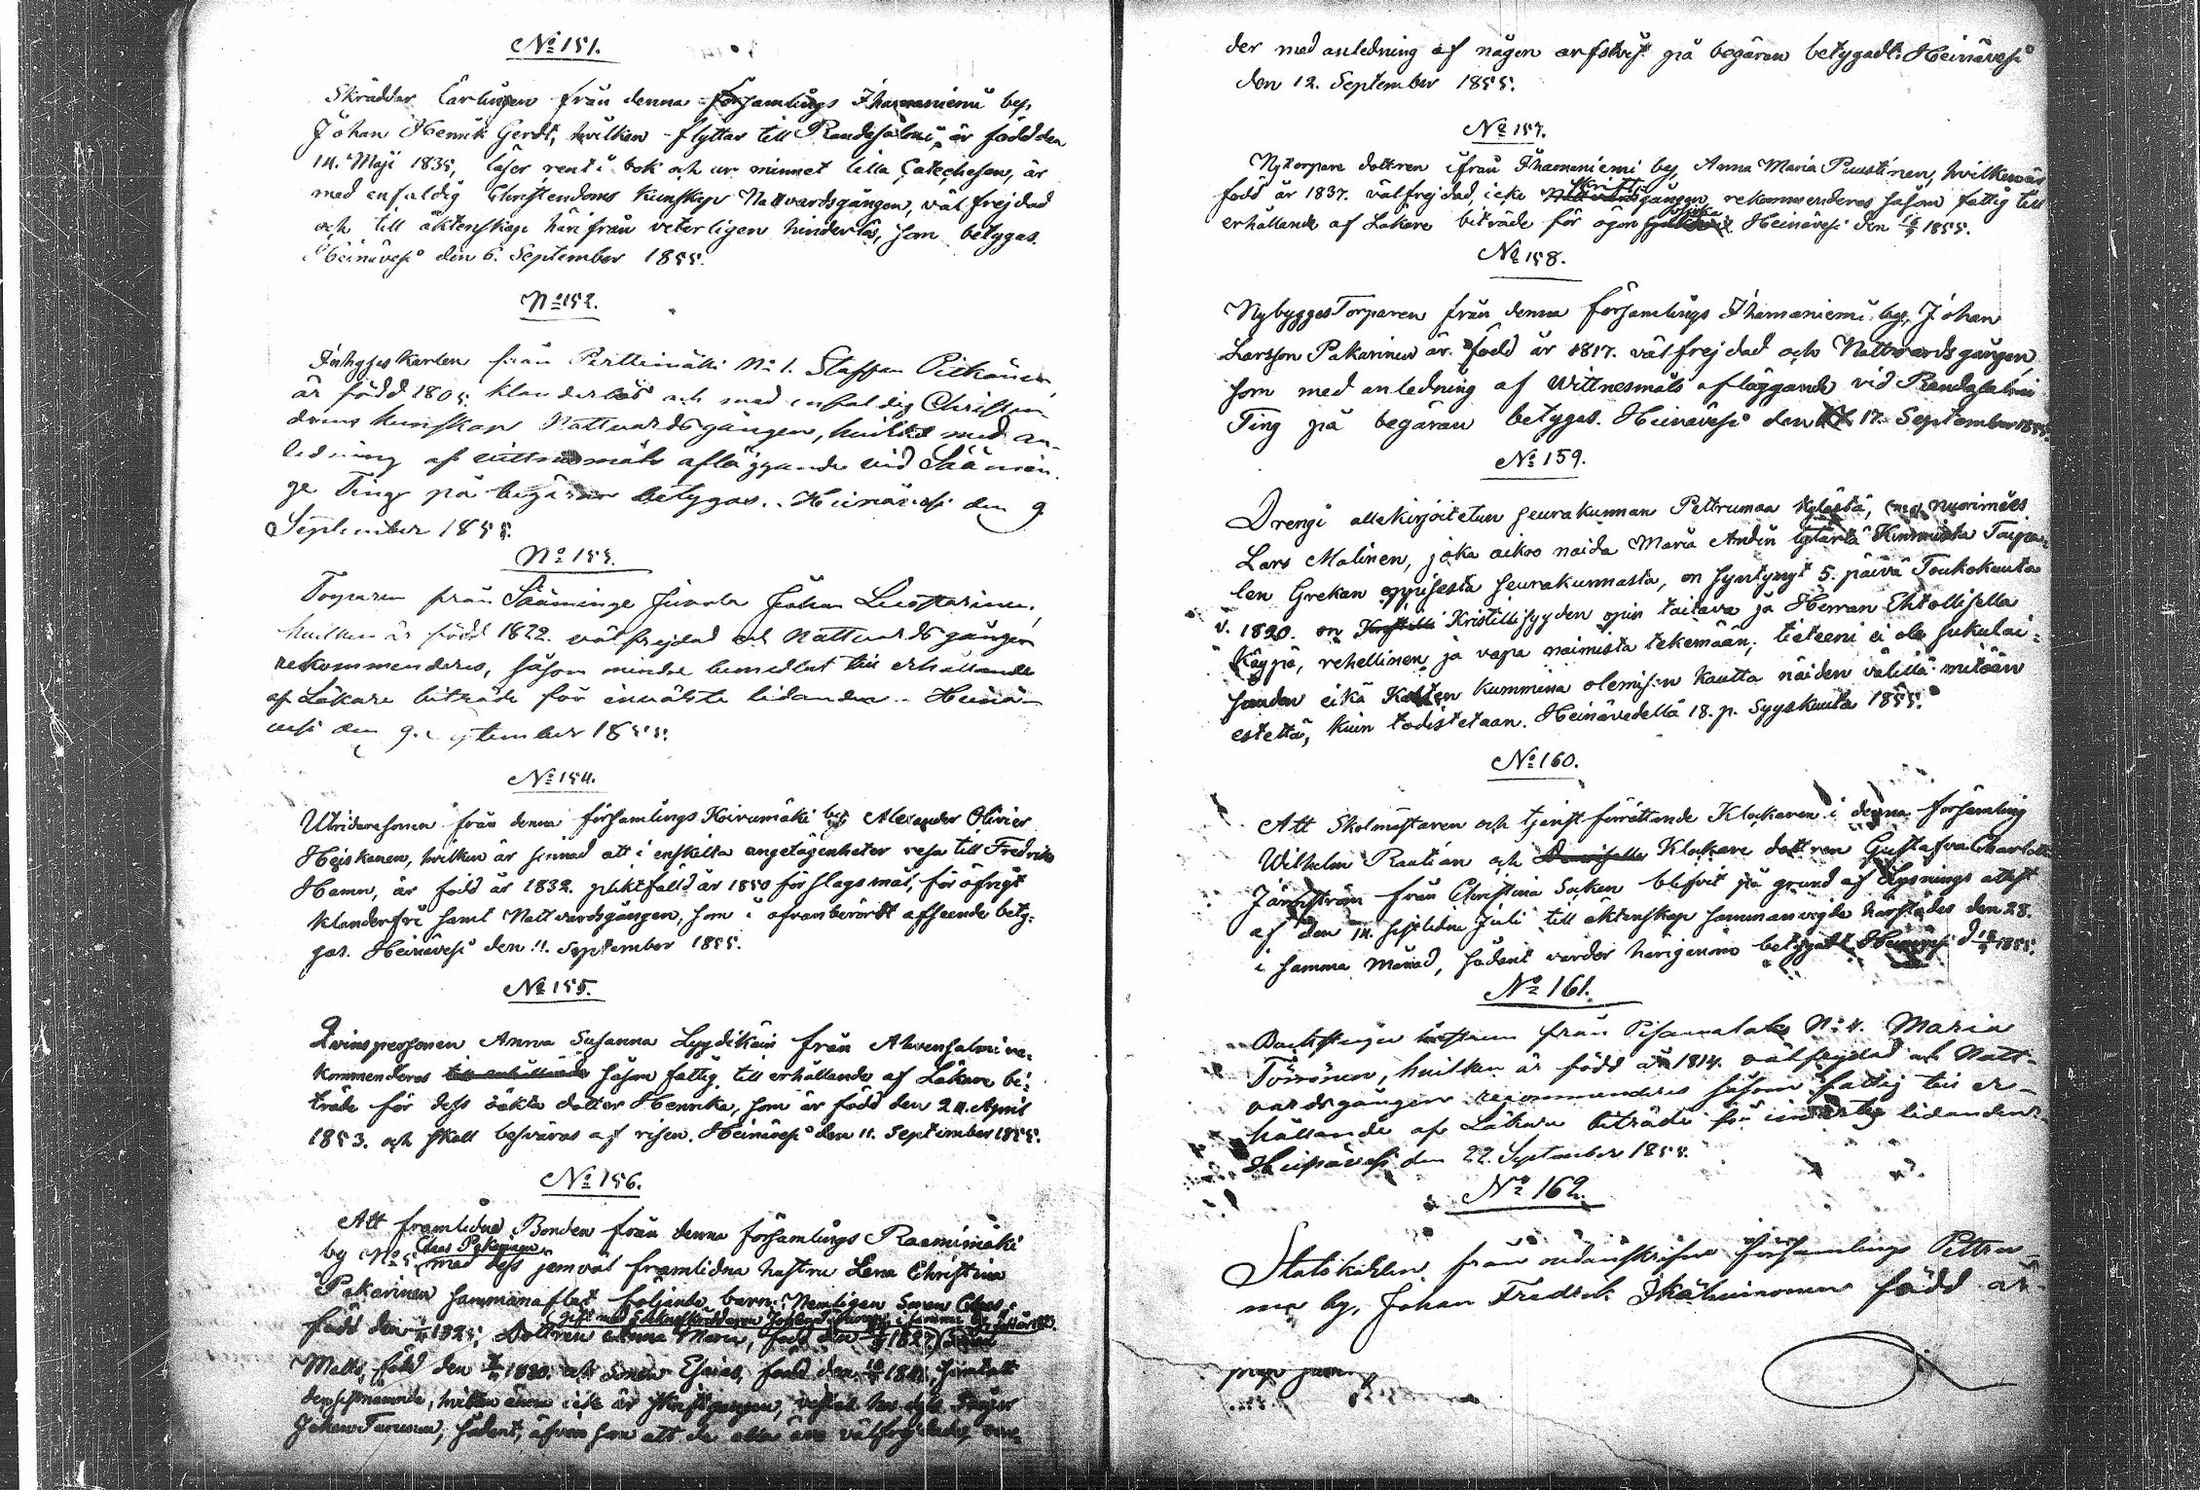 No 151.
Skräddar Lärlingen från denna församlings Ihamaniemi by,
Johan Henrik Gerdt, hvilken flyttar till Randasalmi, är född den
14. Maji 1835, läser rent i bok och ur minnet lilla Catechesen, är
med enfaldig Christendoms Kunskap Nattvardsgången, väl frejdad
och till äktenskap härifrån veterligen hinderlös, som betygas.
Heinävesi den 6. September 1855.
No 152.
Inhyseskarlen från Perttimäki No 1. Staffan Pitkänen
är född 1805. klanderlös och med enfaldig Christen
doms kunskap Nattvardsgången, hvilket med an-
ledning af vittnesmåls afläggande vid Säämin
ge Ting på begäran betygas. Heinävesi den 9
September 1855.
No 153.
Torparen från Sääminge Johan
hvilken är född 1822. välfrejdad och Nattvardsgången
rekommenderes, såsom mindre bemedlat till erhållande
af Läkare biträde för invärtes lidanden. Heinä-
vesi den 9. September 1855.
No 154.
Utridaresonen från denna församlings Koivumäki by Alexander Olivier
Heiskanen, hvilken är sinnad att i enskilta angelägenheter resa till Fredriks
Hamn, är född år 1832. pliktfälld år 1850 för slagsmål, för öfrigt
klanderfri samt Nattvardsgången, som i ofvanberördt afseende bety-
gas. Heinävesi den 11. September 1855.
No 155.
Qvinspersonen Anna Susanna Lyydikäin från Ahvensalmi re-
kommenderes till erhållande såsom fattig till erhållande af Läkare bi-
träde för dess oäkta dotter Henrika, som är född den 24. April
1853. och skall besväras af risen. Heinävesi den 11. September 1855.
No 156.
Att framlidne Bonden från denna församlings Raamimäki
by No 5. Claes Pakarinen med dess jemväl framlidna hustru Lena Christina
Pakarinen sammanaflat följande barn: Nemligen Sonen Claes,
född den 1825, Dottren Anna Maria, född den 1827,
gift med i samma by
Matts, född den 1830. och Sonen Esaias, född den
densistnämnde, hvilken ännu icke är skriftgången, vistas hos dess
Johan Turunen, sådant, äfven som att de alla äro välfrejdade, var-
der med anledning af någon arfstvist på begäran betygadt. Heinävesi
den 12. September 1855.
No 157.
Nytorpare dottren ifrån Ihamaniemi by, Anna Maria Puustinen, hvilken är
född år 1837. välfrejdad, icke skriftgången, rekommenderes såsom fattig till
erhållande af Läkare biträde för ögon Heinävesi den 1855.
No 158.
Nybygges Torparen från denna församlings Ihamaniemi by, Johan
Larsson Pakarinen är född år 1817. välfrejdad och Nattvardsgången,
som med anledning af Wittnesmåls afläggande vid Randasalmi
Ting på begäran betygas. Heinävesi den 17. September 1855.
No 159.
Drengi allekirjoitetun seurakunnan Pettrumaa kylästä, nuorimies
Lars Malinen, joka aikoo naida Maria Andin tytärtä Taipa-
len Grekan oppisesta seurakunnasta, on syntynyt 5. päivä Toukokuuta
v. 1820. on Kristillisyyden opin taitava ja Herran Ehtollisella
käypä, rehellinen ja vapa naimista tekemään; tietseni ei ole sukulai-
suuden eikä Kummina olemisen kautta näiden välillä mitään
estettä, kuin todistetaan. Heinävedellä 18. p. Syyskuuta 1855.
No 160.
Att Skolmästaren och tjenst förrättande Klockaren i denna församling
Wilhelm Rautian och Klockare dottren Gustafva Charlotta
från Christina Socken blifvit på grund af Lysnings attest
af den 14. sistledne Juli till äktenskap sammanvigde härstädes den 28.
i samma Månad, sådant varder härigenom betygadt. Heinävesi d 1855.
No 161.
Backstugu hustrun från Pisamalaks No 4. Maria
Törrönen, hvilken är född år 1814. välfrejdad och Natt-
vardsgången recommenderes såsom fattig till er-
hållande af Läkare biträde för invärtes lidanden
Heinävesi den 22. September 1855.
No 162.
Statskarlen från nedanskrifne församlings Pettru-
ma by, Johan Fredrik Ikäheimonen född år